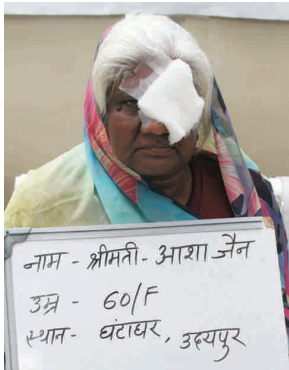 नाम - श्रीमती - आशा जैन
उम्र - 60/F
स्थान - घंटाघर, उदयपुर